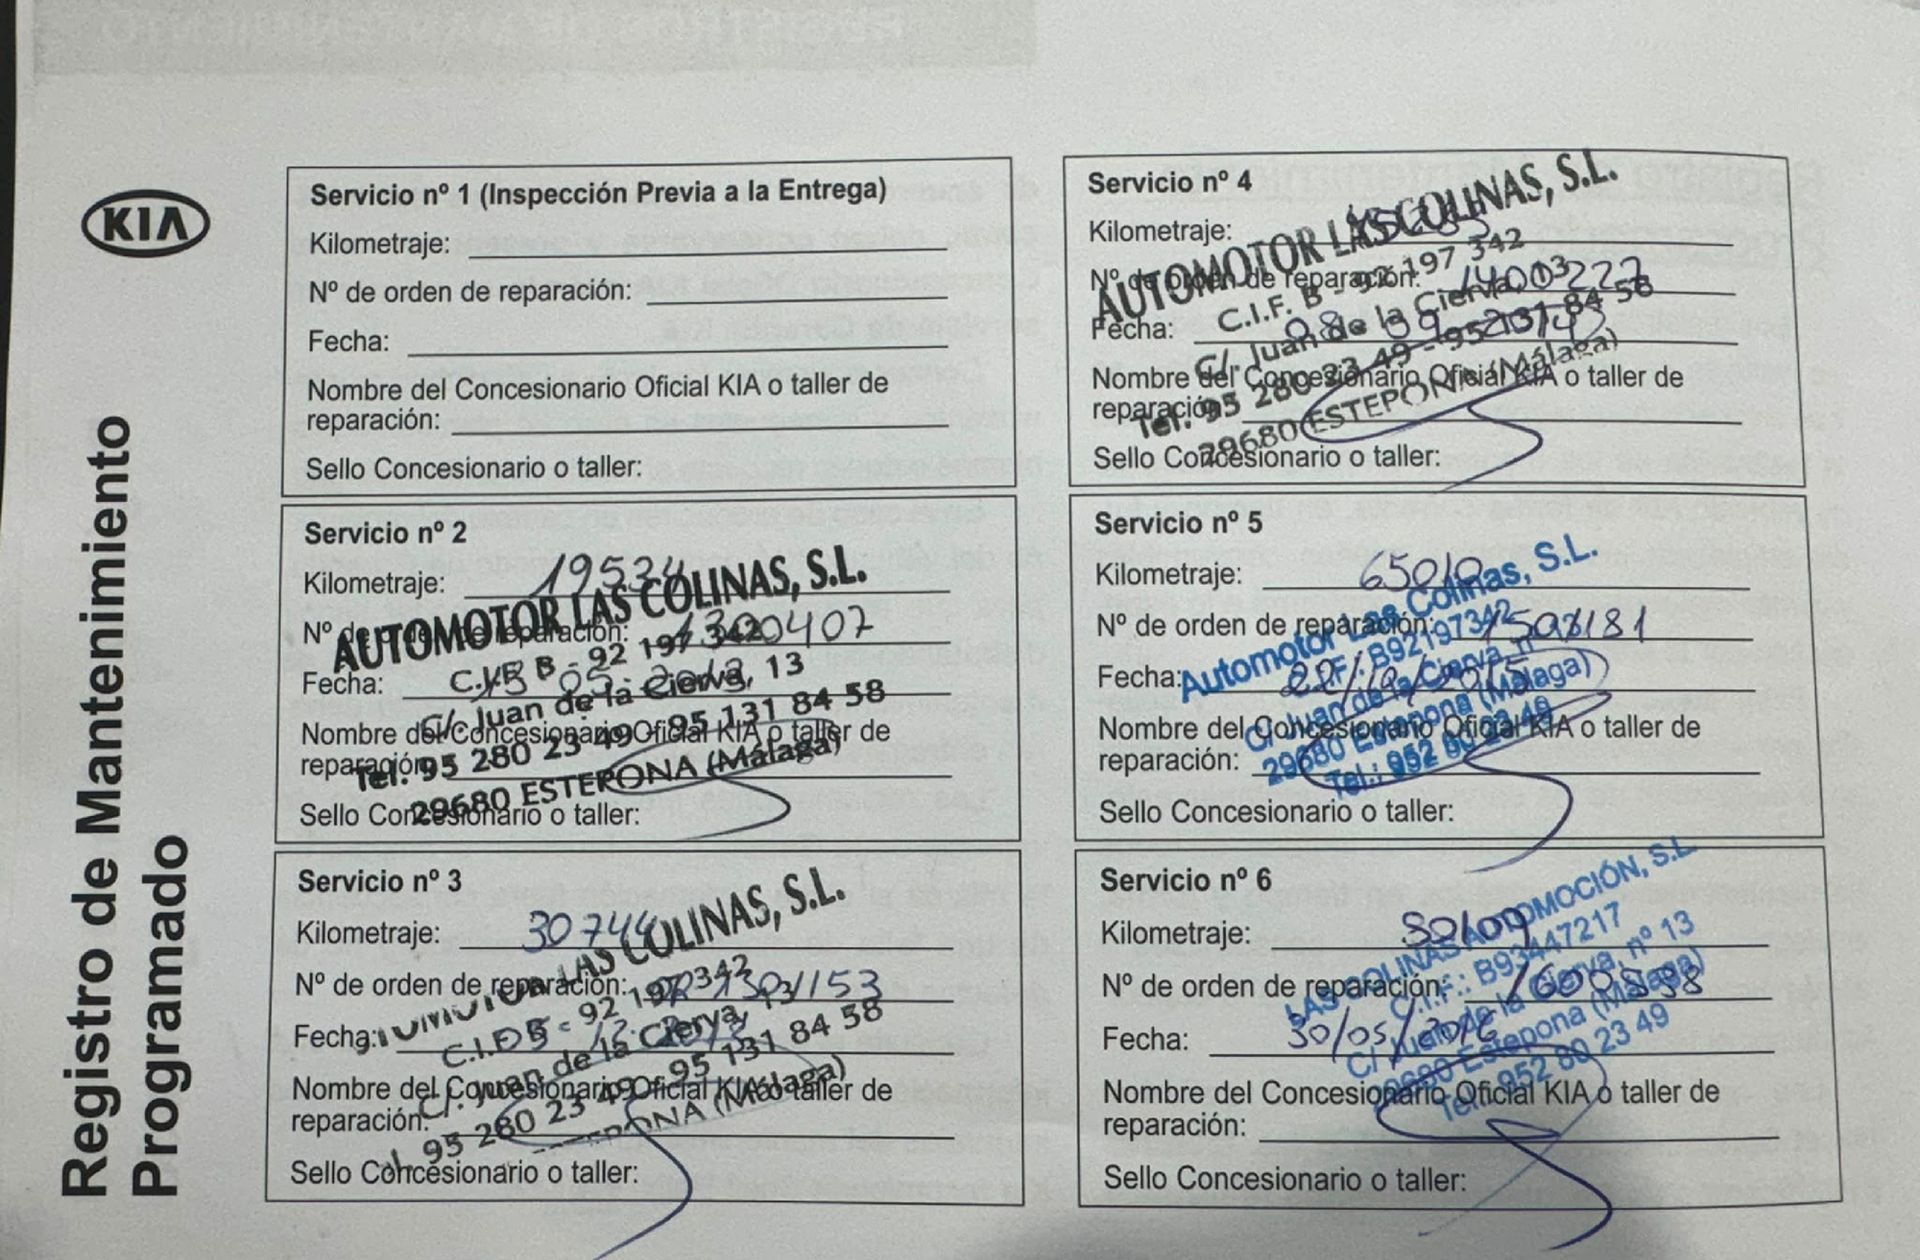 KIA
Registro de Mantenimiento
Programado
Servicio nº 1 (Inspección Previa a la Entrega)
Kilometraje:
Nº de orden de reparación:
Fecha:
Nombre del Concesionario Oficial KIA o taller de
reparación:
Sello Concesionario o taller:
Servicio nº 2
Kilometraje: 19534
Nº de orden de reparación: 1300407
Fecha:
Nombre del Concesionario Oficial KIA o taller de
reparación:
Sello Concesionario o taller:
AUTOMOTOR LAS COLINAS, S.L.
C.I.F. B - 92 197 342
C/. Juan de la Cierva, 13
Tel. 95 280 23 49 - 95 131 84 58
29680 ESTEPONA (Málaga)
Servicio nº 3
Kilometraje: 30744
Nº de orden de reparación:
Fecha:
Nombre del Concesionario Oficial KIA o taller de
reparación:
Sello Concesionario o taller:
LAS COLINAS, S.L.
C.I.F. B - 92 197 342
C/. Juan de la Cierva, 13
95 280 23 49 - 95 131 84 58
ESTEPONA (Málaga)
Servicio nº 4
Kilometraje:
Nº de orden de reparación: 1400227
Fecha:
Nombre del Concesionario Oficial KIA o taller de
reparación:
Sello Concesionario o taller:
AUTOMOTOR LAS COLINAS, S.L.
C.I.F. B - 92 197 342
C/. Juan de la Cierva, 13
Tel. 95 280 23 49 - 95 131 84 58
29680 ESTEPONA (Málaga)
Servicio nº 5
Kilometraje: 65010
Nº de orden de reparación:
Fecha:
Nombre del Concesionario Oficial KIA o taller de
reparación:
Sello Concesionario o taller:
Automotor Las Colinas, S.L.
C.I.F.: B92197342
C/ Juan de la Cierva, nº
29680 Estepona (Málaga)
Tel.: 952 80 23 49
Servicio nº 6
Kilometraje: 80109
Nº de orden de reparación:
Fecha: 30/05/2016
Nombre del Concesionario Oficial KIA o taller de
reparación:
Sello Concesionario o taller:
LAS COLINAS AUTOMOCIÓN, S.L.
C.I.F.: B93447217
C/ Juan de la Cierva, nº 13
29680 Estepona (Málaga)
Tel. 952 80 23 49